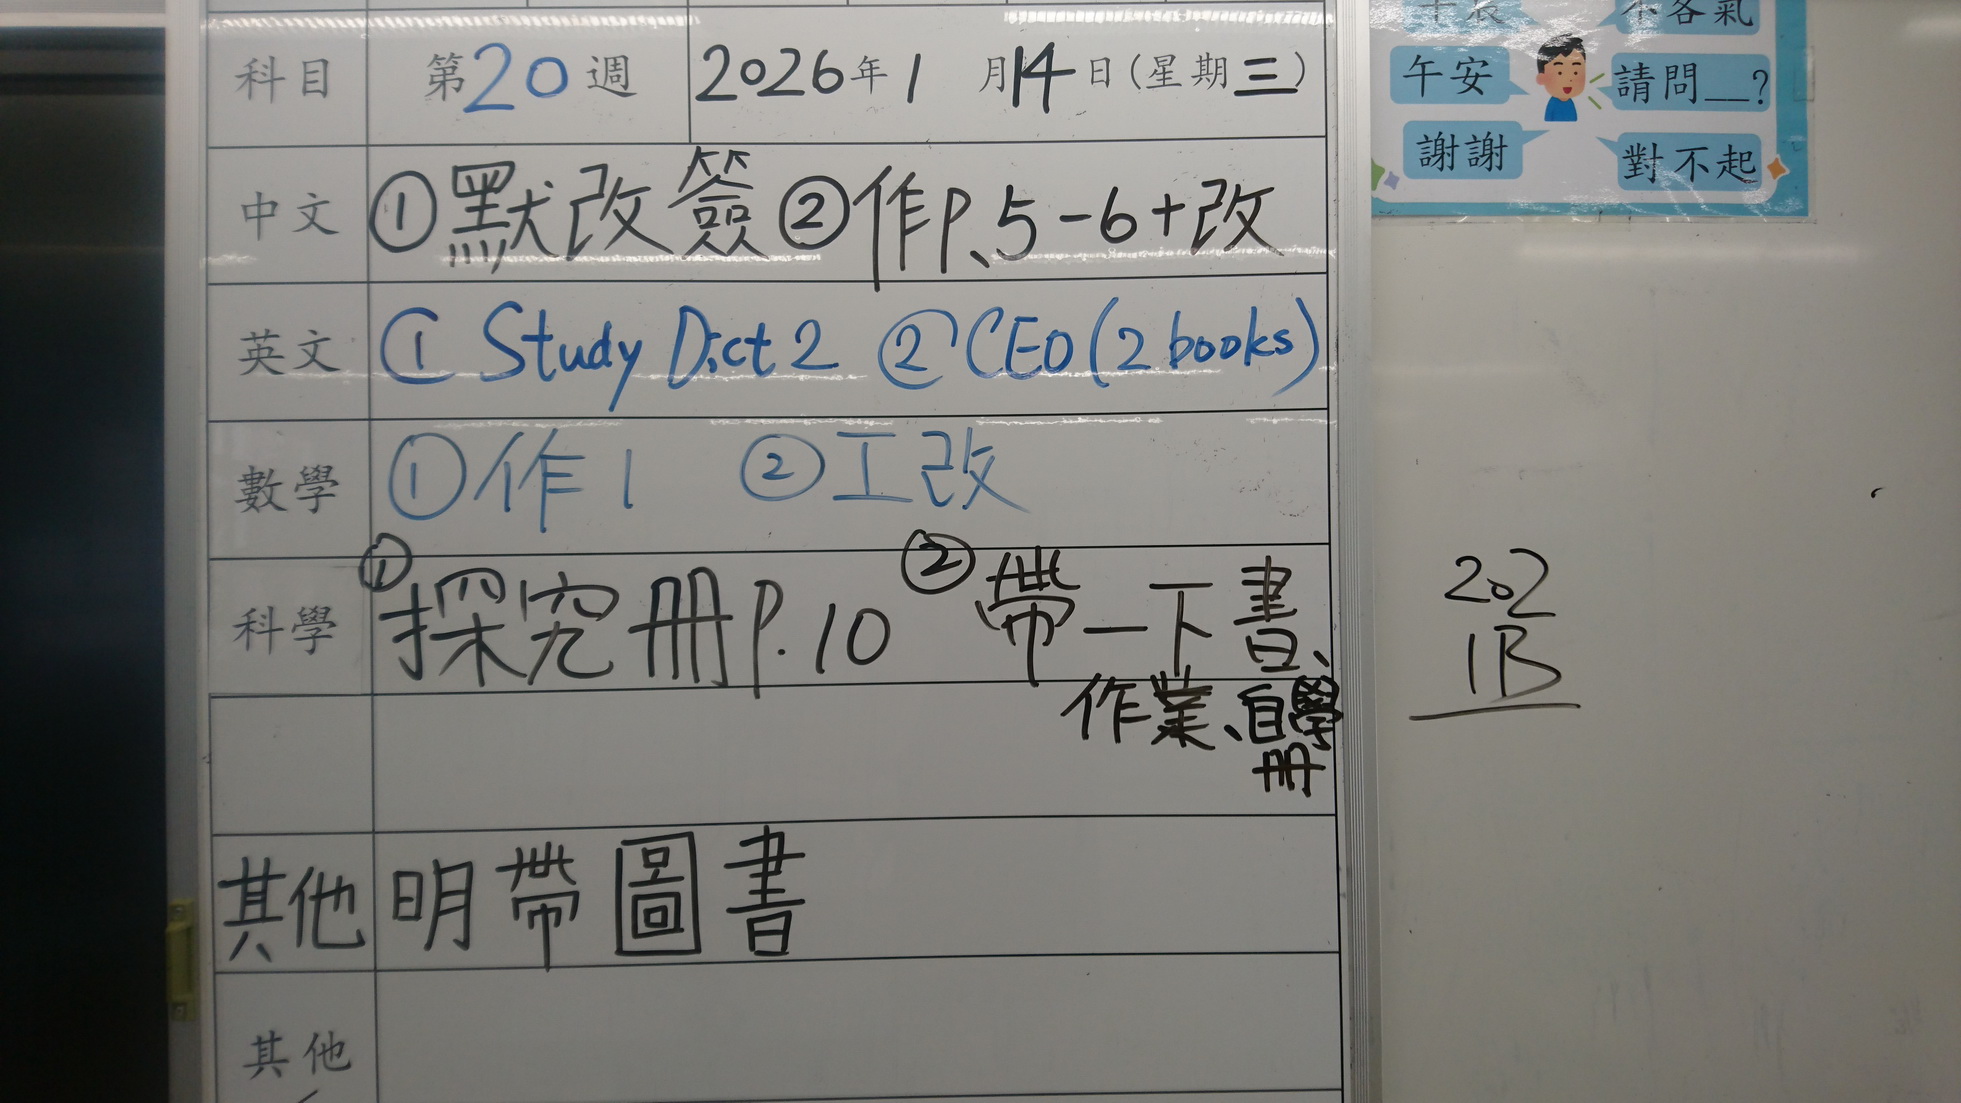 科目 第20週 2026年1月14日(星期三)
中文 ①默改簽②作P.5-6+改
英文 ① Study Dict 2 ② CEO (2 books)
數學 ①作1 ②工改
科學 ①探究册P.10 ②帶一下書、
作業、自學
册
其他 明帶圖書
其他
午安
請問__?
謝謝
對不起
202
1B